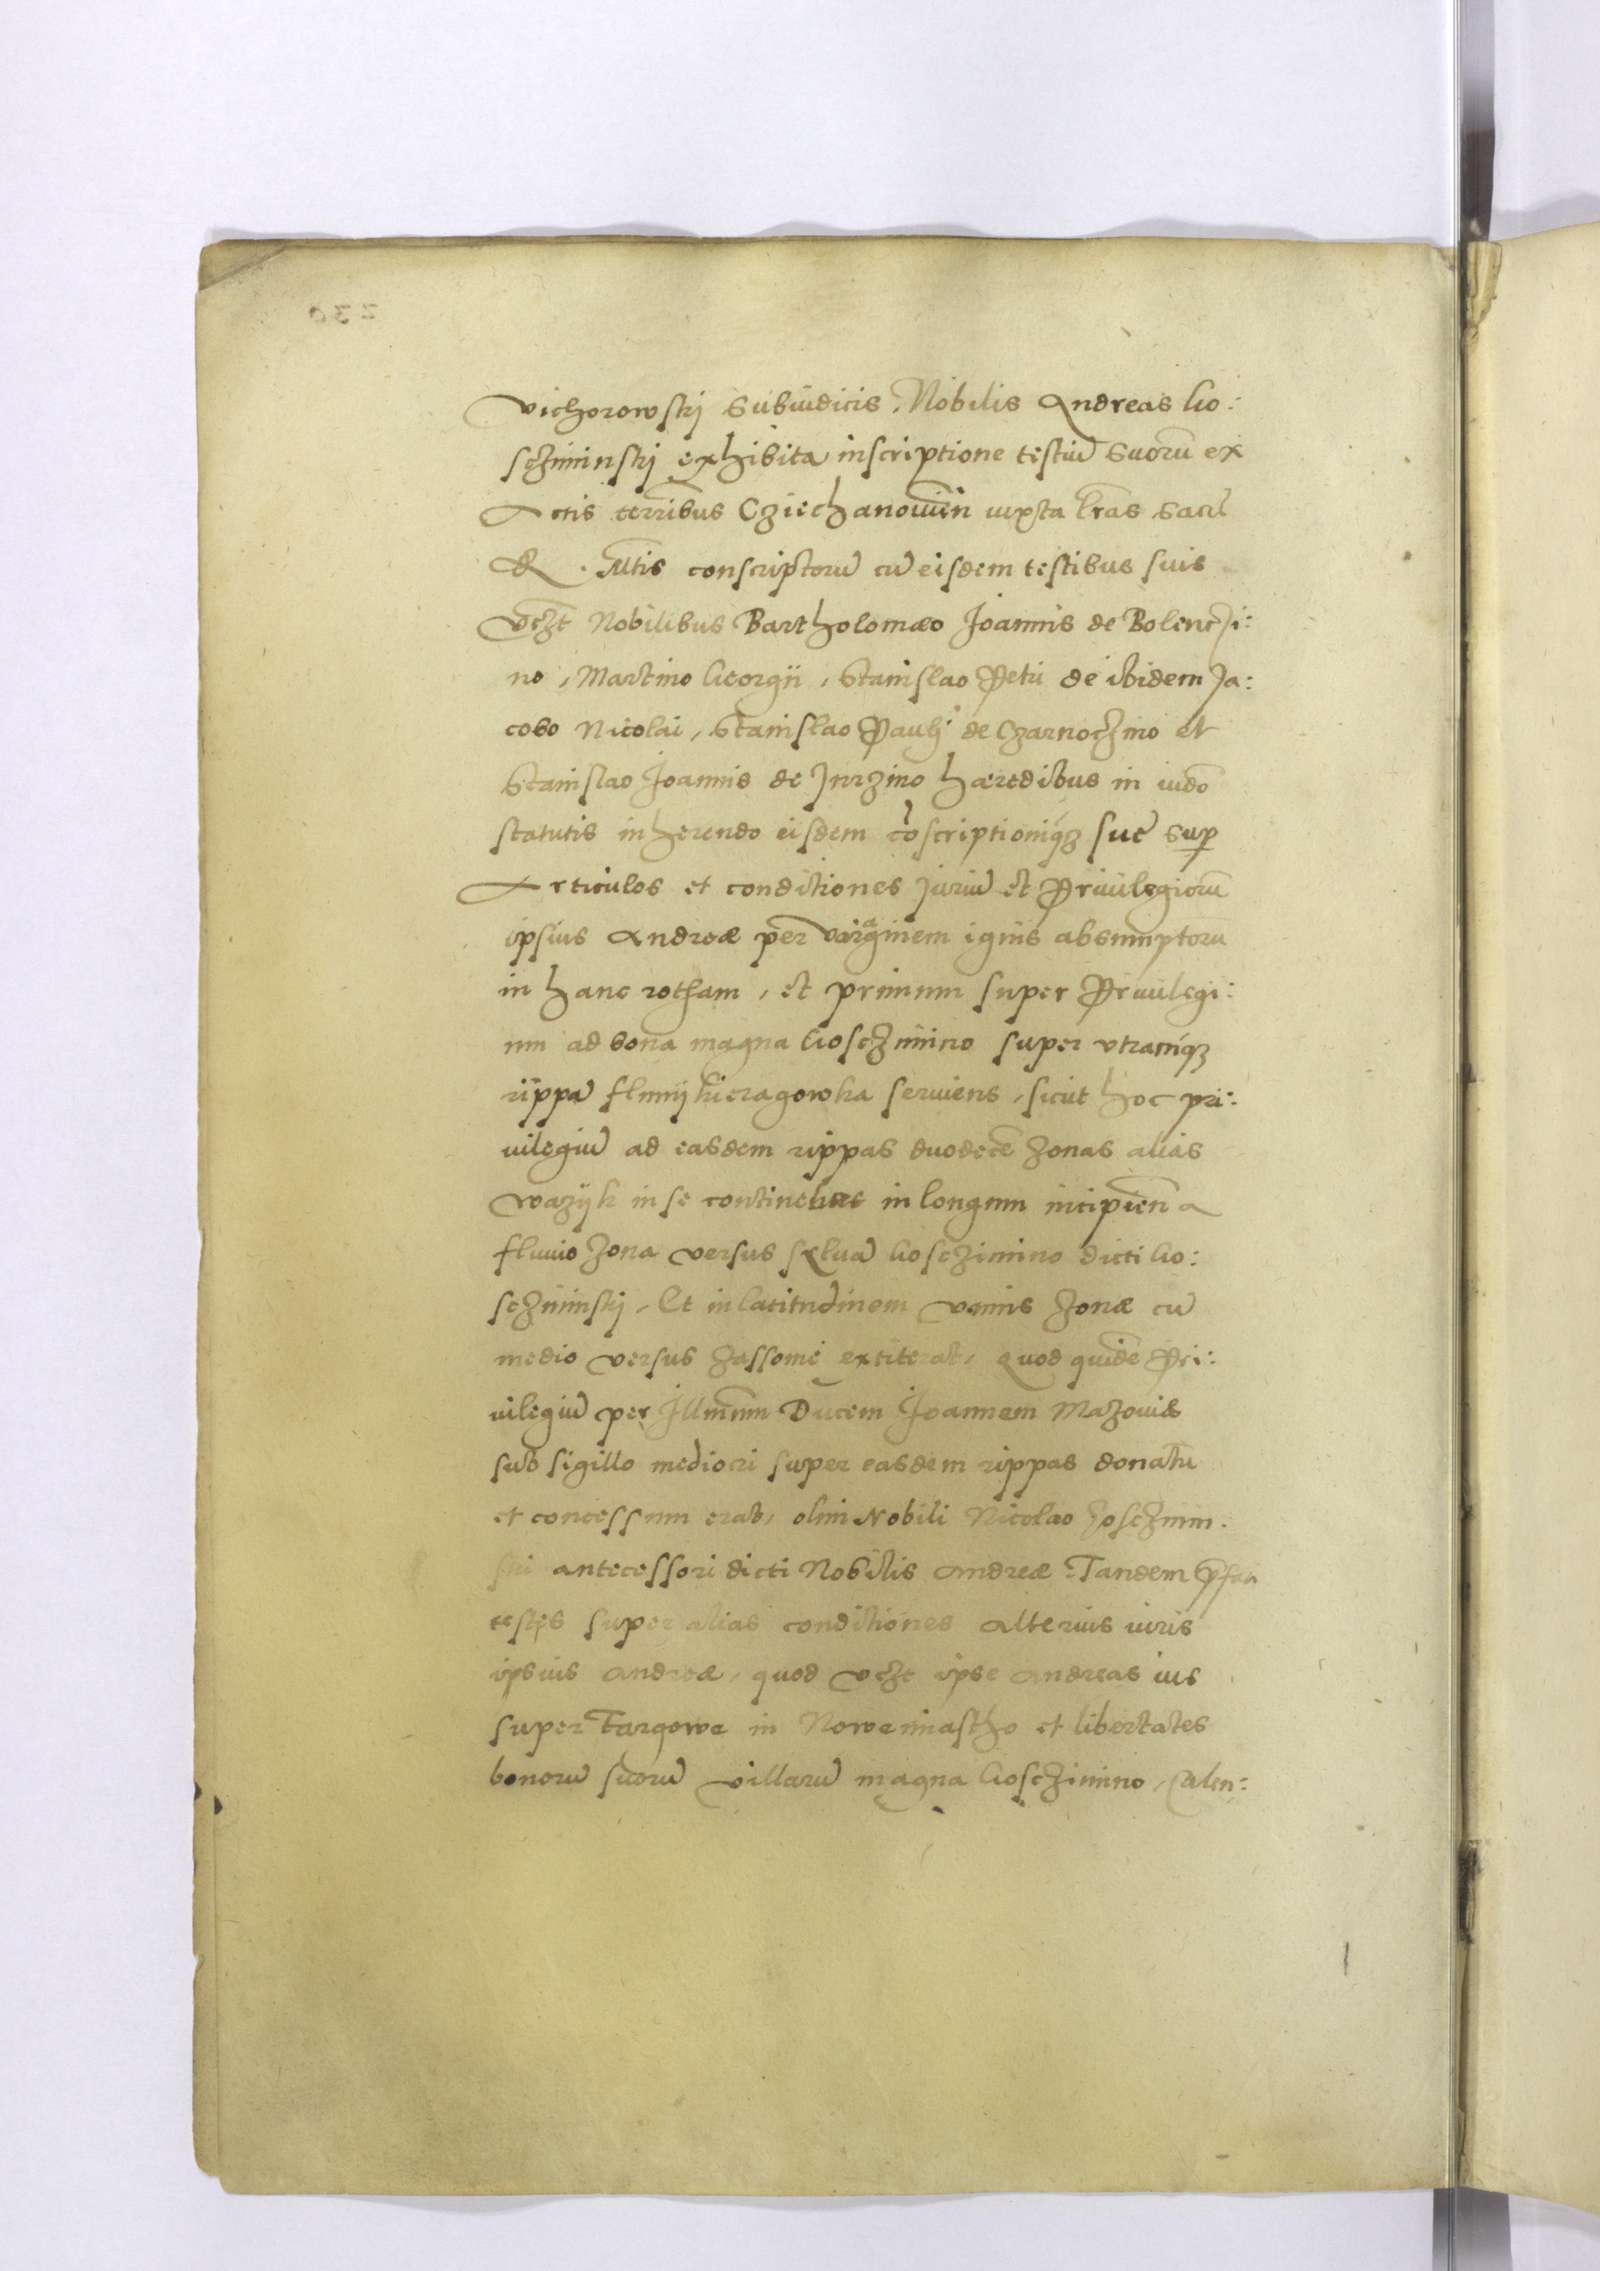 Vichorowskj Subiudicis, Nobilis Andreas Go:
sczminskj exhibita inscriptione testiū suorū ex
Actis terrībus Cziechanowień iuxta lras Sacrę
R. Mtis conscriptorū cū eisdem testibus suis
Vczt Nobilibus Bartholomæo Joannis de Bolenczi:
no, Martino Georgii, Stanislao Petri de ibidem Ja:
cobo Nicolai, Stanislao Paulj de Czarnoczino et
Stanislao Joannis de Jnrzino hæredibus in iudō
statutis inherendo eisdem cōscriptioniq̃z suę sup
Articulos et conditiones Juriū et Priuilegiorū
ipsius Andreæ per Voraginem ignis absumptorū
in hanc rotham, et primum super Priuilegi:
um ad bona magna Gosczimino super vtramq̃z
rippā fluuij Kieragowka seruiens, sicut hoc pri:
uilegiū ad easdem rippas duodecē Zonas alias
Wazijk in se continebat in longum incipień a
fluuio Zona versus syluā Gosczimino dicti Go:
sczminskj, Et in latitudinem vnius Zonæ cū
medio versus Zassomę extiterat, quod quidē Pri:
uilegiū per Jllmum Ducem Joannem Mazouiæ
sub sigillo mediocri super easdem rippas donatū
et concessum erat, olim Nobili Nicolao Gosczmin.
ski antecessori dicti Nobilis Andreæ. Tandem
testes super alias conditiones alterius iuris
ipsius Andreæ, quod vczt ipse Andreas ius
super Targowe in Nowemiastho et libertates
bonorū suorū villarū magna Gosczimino, Calen:
230